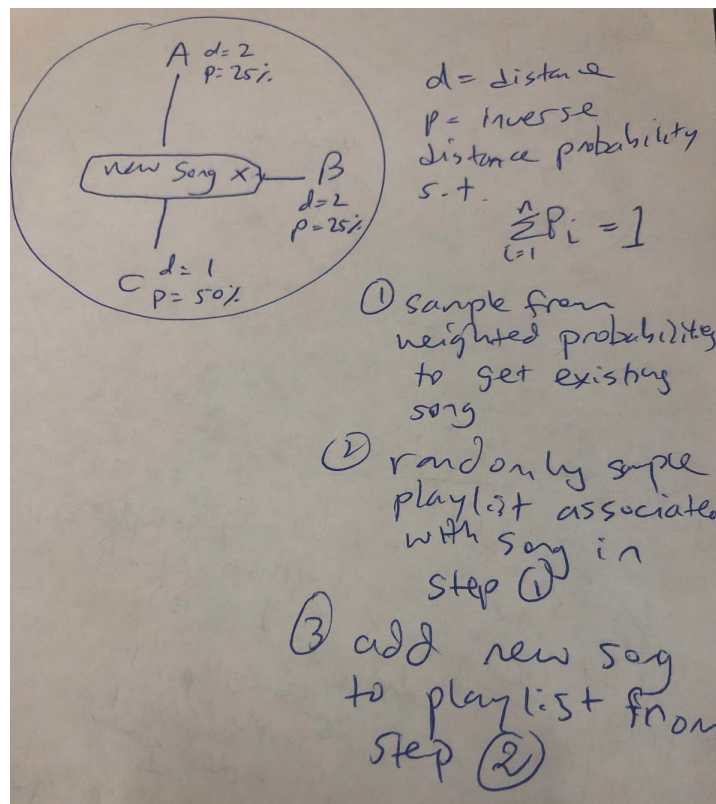 A d=2
p=25%
new song x
B
d=2
p=25%
C d=1
p=50%
d= distance
p= inverse
distance probability
s.t.
n
∑ Pi = 1
i=1
① sample from
weighted probabilities
to get existing
song
② randomly sample
playlist associated
with song in
step ①
③ add new song
to playlist from
step ②